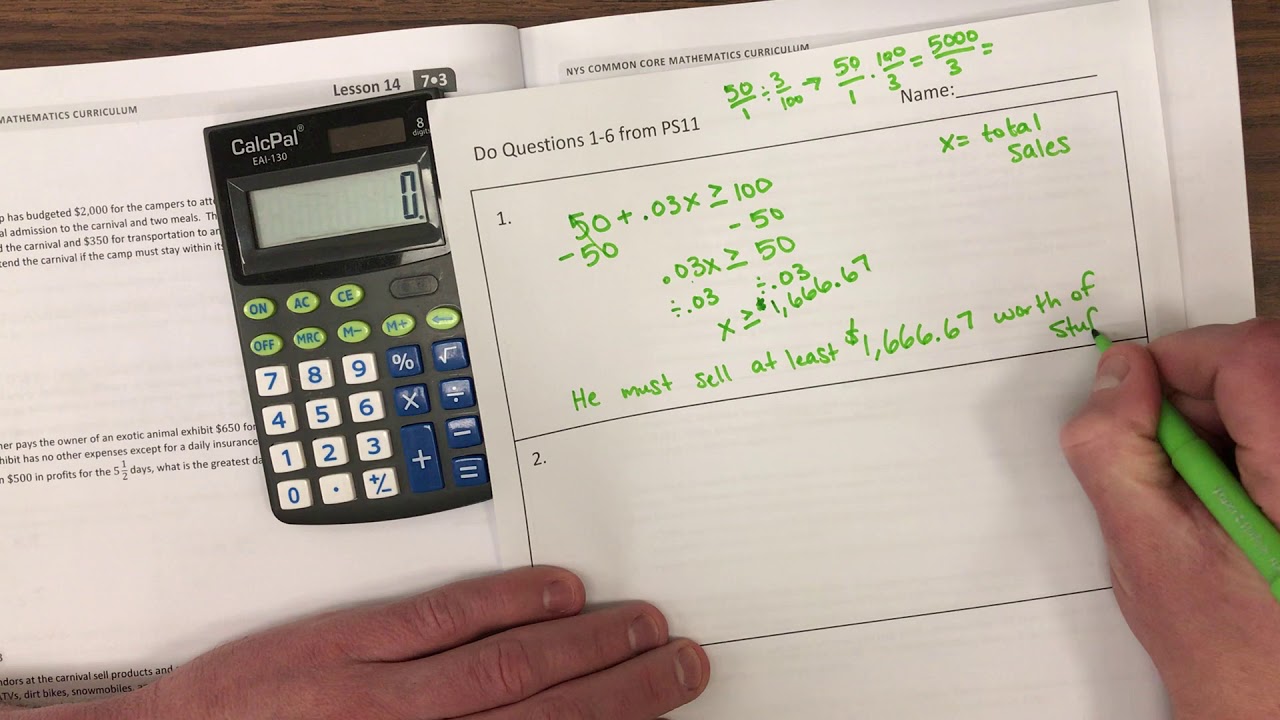 Lesson 14 7•3
MATHEMATICS CURRICULUM
p has budgeted $2,000 for the campers to
al admission to the carnival and two meals.
d the carnival and $350 for transportation to
tend the carnival if the camp must stay within
her pays the owner of an exotic animal exhibit $650
hibit has no other expenses except for a daily insurance
$500 in profits for the 5 1/2 days, what is the greatest
ndors at the carnival sell products and
ATVs, dirt bikes, snowmobiles,
CalcPal®
EAI-130
8
digits
0.
ON AC CE
OFF MRC M− M+ ←
7 8 9 % √
4 5 6 X ÷
1 2 3 + −
0 . +/− =
NYS COMMON CORE MATHEMATICS CURRICULUM
50/1 ÷ 3/100 → 50/1 · 100/3 = 5000/3 =
Name:
Do Questions 1-6 from PS11
x = total
sales
1.
50 + .03x ≥ 100
-50 -50
.03x ≥ 50
÷.03 ÷.03
x ≥ $1,666.67
He must sell at least $1,666.67 worth of
stuf
2.